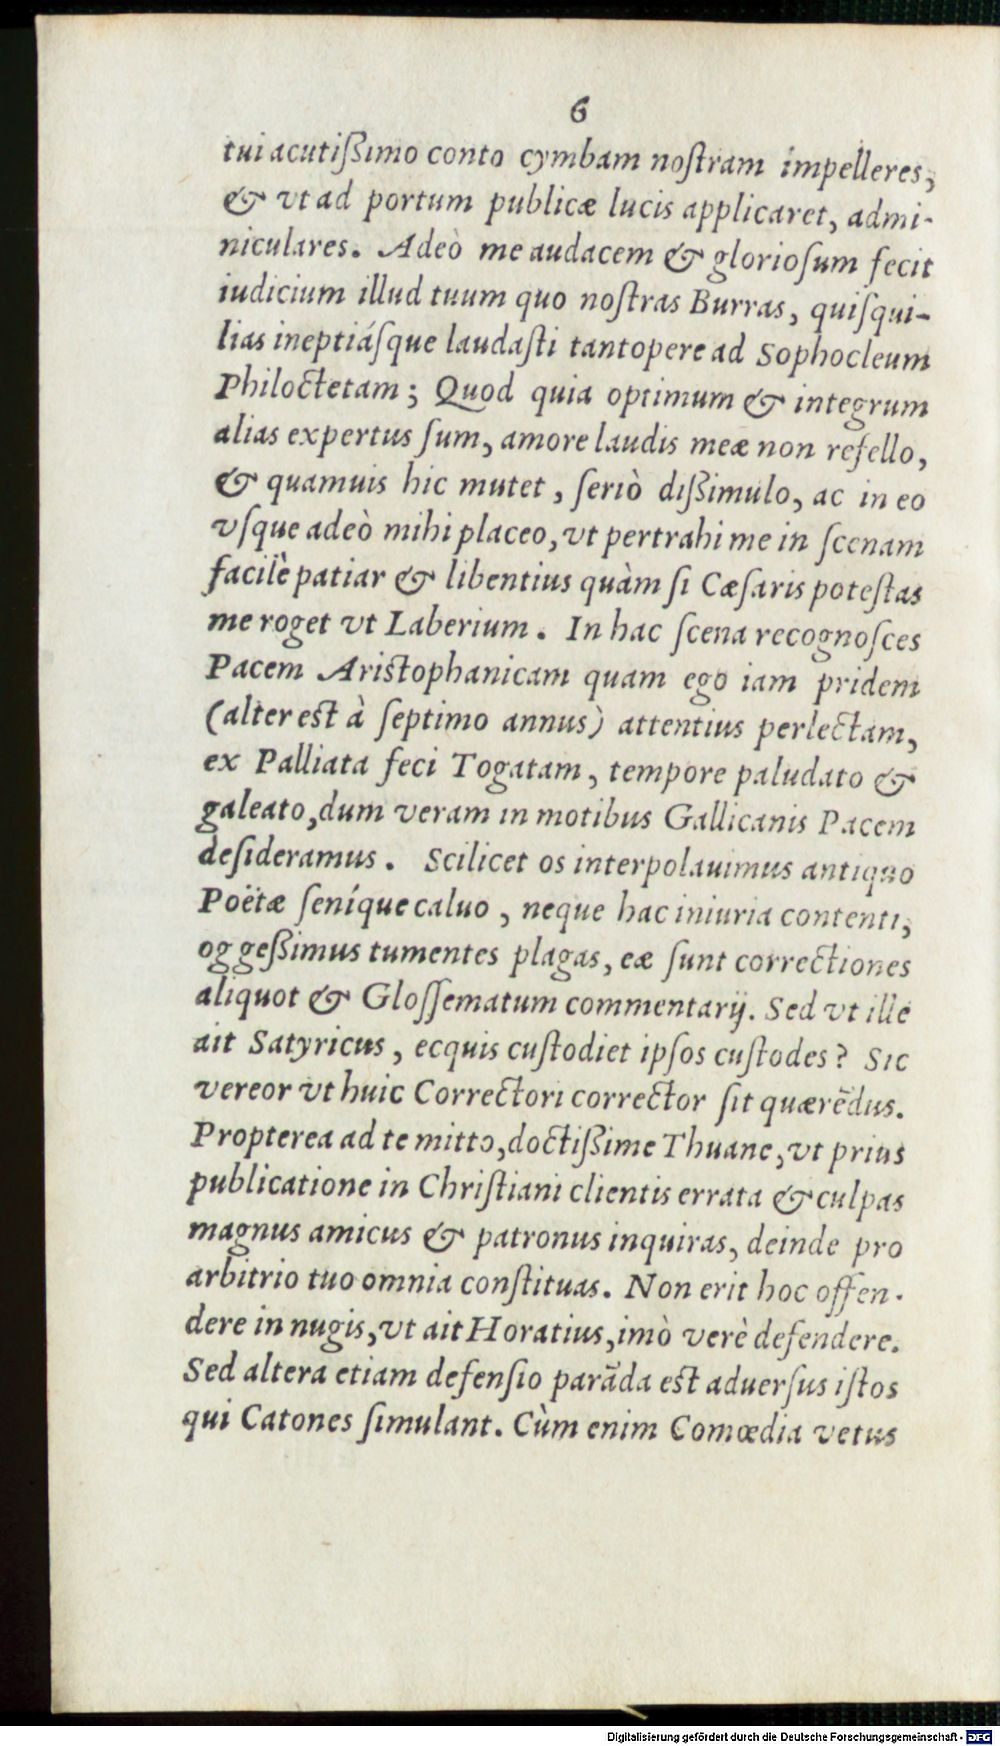 6
tui acutißimo conto cymbam noſtram impelleres,
& vt ad portum publicæ lucis applicaret, admi-
niculares. Adeò me audacem & glorioſum fecit
iudicium illud tuum quo noſtras Burras, quiſqui-
lias ineptiáſque laudaſti tantopere ad Sophocleum
Philoctetam; Quod quia optimum & integrum
alias expertus ſum, amore laudis meæ non refello,
& quamuis hic mutet, ſeriò dißimulo, ac in eo
vſque adeò mihi placeo, vt pertrahi me in ſcenam
facilè patiar & libentius quàm ſi Cæſaris poteſtas
me roget vt Laberium. In hac ſcena recognoſces
Pacem Ariſtophanicam quam ego iam pridem
(alter eſt à ſeptimo annus) attentius perlectam,
ex Palliata feci Togatam, tempore paludato &
galeato, dum veram in motibus Gallicanis Pacem
deſideramus. Scilicet os interpolauimus antiquo
Poëtæ ſeníque caluo, neque hac iniuria contenti,
oggeßimus tumentes plagas, eæ ſunt correctiones
aliquot & Gloſſematum commentarij. Sed vt ille
ait Satyricus, ecquis cuſtodiet ipſos cuſtodes? Sic
vereor vt huic Correctori corrector ſit quærēdus.
Propterea ad te mitto, doctißime Thuane, vt prius
publicatione in Chriſtiani clientis errata & culpas
magnus amicus & patronus inquiras, deinde pro
arbitrio tuo omnia conſtituas. Non erit hoc offen-
dere in nugis, vt ait Horatius, imò verè defendere.
Sed altera etiam defenſio parāda eſt aduerſus iſtos
qui Catones ſimulant. Cùm enim Comœdia vetus
Digitalisierung gefördert durch die Deutsche Forschungsgemeinschaft - DFG